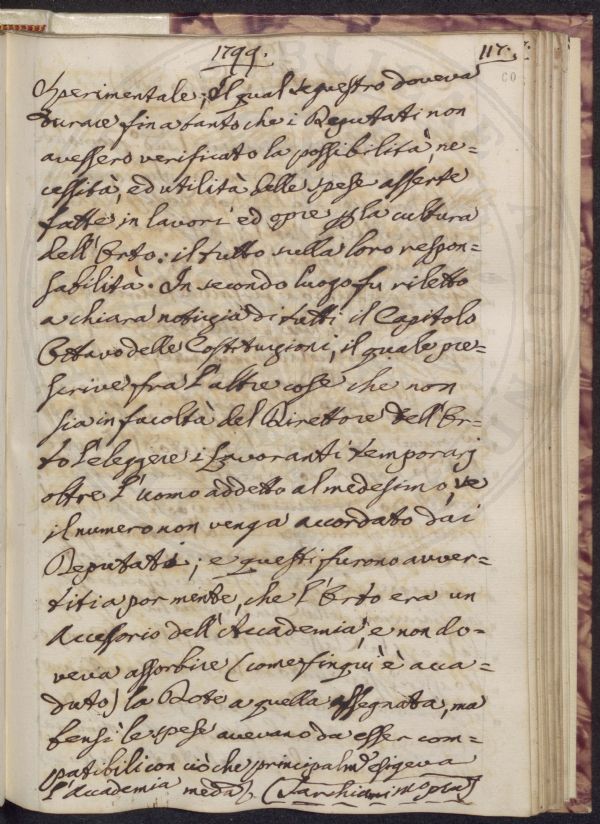 1799.
117.
60
Sperimentale; Il qual sequestro doveva
durare fin a tanto che i Deputati non
avessero verificato la possibilità, ne=
cessità, ed utilità delle spese asserte
fatte in lavori ed opre p la cultura
dell'Orto: il tutto sulla loro respon=
sabilità. In secondo luogo fu riletto
a chiara notizia di tutti il Capitolo
Ottavo delle Costituzioni, il quale pre=
scrive fra l'altre cose che non
sia in facoltà del Direttore dell'Or=
to l'eleggere i Lavoranti temporarj
oltre l'uomo addetto al medesimo, se
il numero non venga accordato dai
Deputati; e questi furono avver=
titi a por mente, che l'Orto era un
Accessorio dell'Accademia, e non do=
veva assorbire (come finquì è acca=
duto) la Dote a quella assegnata, ma
bensì le spese avevano da esser com=
patibili con ciò che principalm.e esigeva
l'Accademia meda).